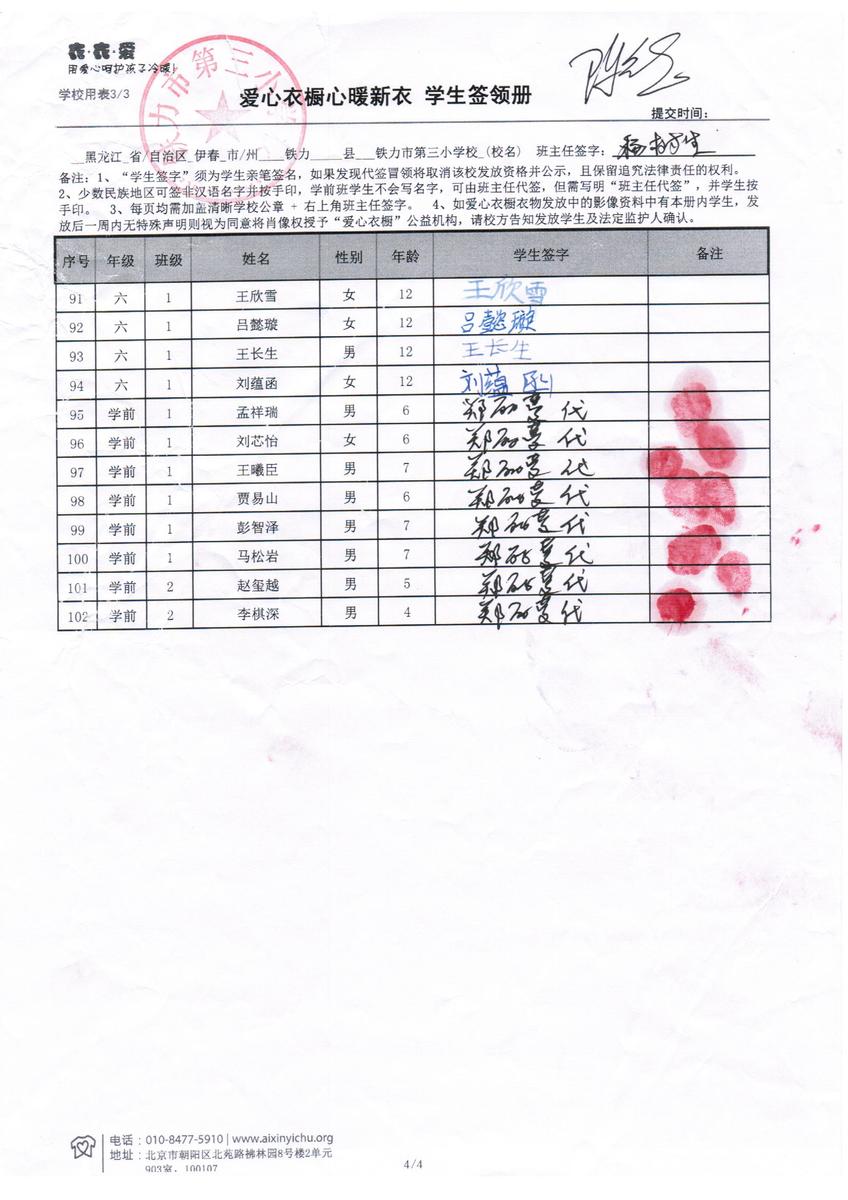 衣·衣·爱
用爱心呵护孩子冷暖!
铁力市第三小学
学校用表3/3
爱心衣橱心暖新衣 学生签领册
提交时间:
__黑龙江_省/自治区_伊春_市/州____铁力_____县___铁力市第三小学校_(校名) 班主任签字:
备注:1、“学生签字”须为学生亲笔签名,如果发现代签冒领将取消该校发放资格并公示,且保留追究法律责任的权利。
2、少数民族地区可签非汉语名字并按手印,学前班学生不会写名字,可由班主任代签,但需写明“班主任代签”,并学生按
手印。 3、每页均需加盖清晰学校公章 + 右上角班主任签字。 4、如爱心衣橱衣物发放中的影像资料中有本册内学生,发
放后一周内无特殊声明则视为同意将肖像权授予“爱心衣橱”公益机构,请校方告知发放学生及法定监护人确认。
序号 年级 班级 姓名 性别 年龄 学生签字 备注
91 六 1 王欣雪 女 12 王欣雪
92 六 1 吕懿璇 女 12 吕懿璇
93 六 1 王长生 男 12 王长生
94 六 1 刘蕴函 女 12 刘蕴函
95 学前 1 孟祥瑞 男 6 郑 代
96 学前 1 刘芯怡 女 6 郑 代
97 学前 1 王曦臣 男 7 郑 代
98 学前 1 贾易山 男 6 郑 代
99 学前 1 彭智泽 男 7 郑 代
100 学前 1 马松岩 男 7 郑 代
101 学前 2 赵玺越 男 5 郑 代
102 学前 2 李棋深 男 4 郑 代
电话:010-8477-5910 | www.aixinyichu.org
地址:北京市朝阳区北苑路拂林园8号楼2单元
903室, 100107
4/4